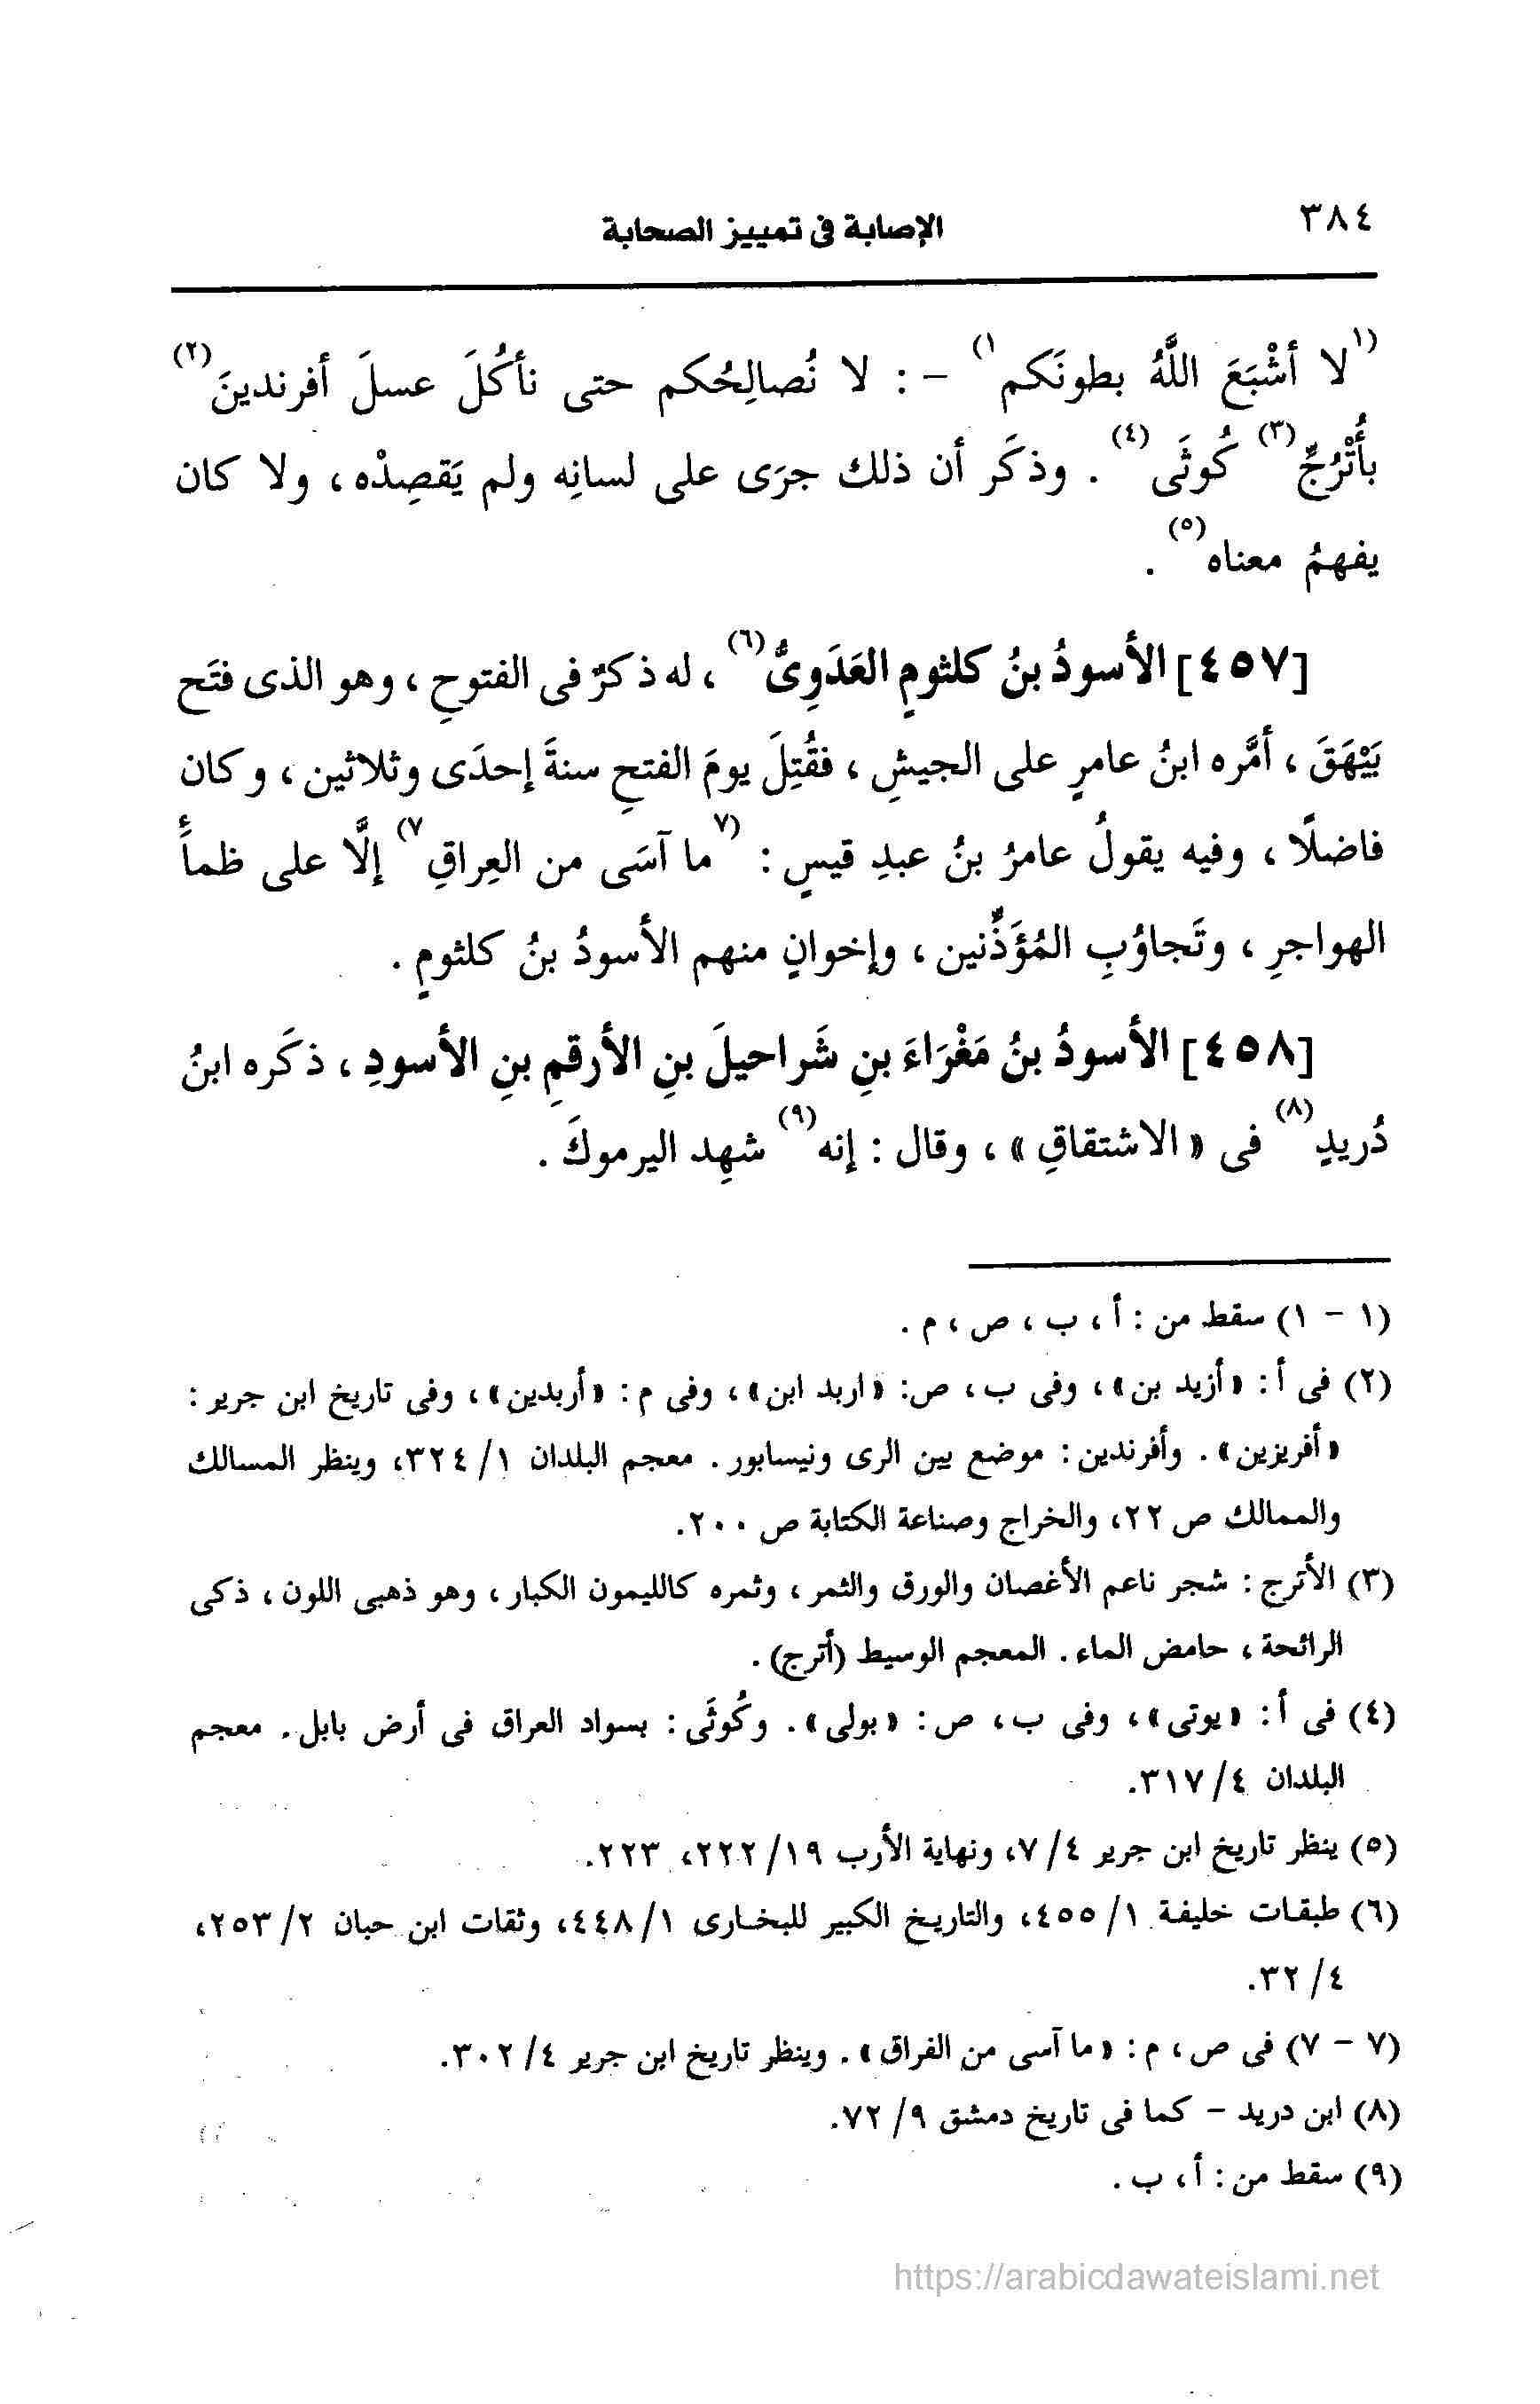 ٣٨٤
الإصابة فى تمييز الصحابة
(١لا أشْبَعَ اللَّهُ بطونَكم١) - : لا نُصالِحُكم حتى نأكُلَ عسلَ أفرندينَ(٢)
بأُتْرُجِّ(٣) كُوثَى(٤) . وذكَر أن ذلك جرَى على لسانِه ولم يَقصِدْه ، ولا كان
يفهمُ معناه(٥) .
[٤٥٧] الأسودُ بنُ كلثومٍ العَدَوِىُّ(٦) ، له ذكرٌ فى الفتوحِ ، وهو الذى فتَح
بَيْهَقَ ، أمَّره ابنُ عامرٍ على الجيشِ ، فقُتِلَ يومَ الفتحِ سنةَ إحدَى وثلاثين ، وكان
فاضلًا ، وفيه يقولُ عامرُ بنُ عبدِ قيسٍ : (٧ما آسَى من العِراقِ٧) إلَّا على ظمأَ
الهواجرِ ، وتَجاوُبِ المُؤَذِّنين ، وإخوانٍ منهم الأسودُ بنُ كلثومٍ .
[٤٥٨] الأسودُ بنُ مَغْرَاءَ بنِ شَراحيلَ بنِ الأرقمِ بنِ الأسودِ ، ذكَره ابنُ
دُريدٍ(٨) فى « الاشتقاقِ » ، وقال : إنه(٩) شهِد اليرموكَ .
(١ - ١) سقط من : أ ، ب ، ص ، م .
(٢) فى أ : « أزيد بن » ، وفى ب ، ص : « اربد ابن » ، وفى م : « أربدين » ، وفى تاريخ ابن جرير :
« أفريزين » . وأفرندين : موضع بين الرى ونيسابور . معجم البلدان ١/ ٣٢٤، وينظر المسالك
والممالك ص ٢٢، والخراج وصناعة الكتابة ص ٢٠٠.
(٣) الأترج : شجر ناعم الأغصان والورق والثمر ، وثمره كالليمون الكبار ، وهو ذهبى اللون ، ذكى
الرائحة ، حامض الماء . المعجم الوسيط (أترج) .
(٤) فى أ : « يوتى » ، وفى ب ، ص : « بولى » . وكُوثَى : بسواد العراق فى أرض بابل . معجم
البلدان ٤/ ٣١٧.
(٥) ينظر تاريخ ابن جرير ٤/ ٧، ونهاية الأرب ١٩/ ٢٢٢، ٢٢٣.
(٦) طبقات خليفة ١/ ٤٥٥، والتاريخ الكبير للبخارى ١/ ٤٤٨، وثقات ابن حبان ٢/ ٢٥٣،
٤/ ٣٢.
(٧ - ٧) فى ص ، م : « ما آسى من الفراق » . وينظر تاريخ ابن جرير ٤/ ٣٠٢.
(٨) ابن دريد - كما فى تاريخ دمشق ٩/ ٧٢.
(٩) سقط من : أ ، ب .
https://arabicdawateislami.net